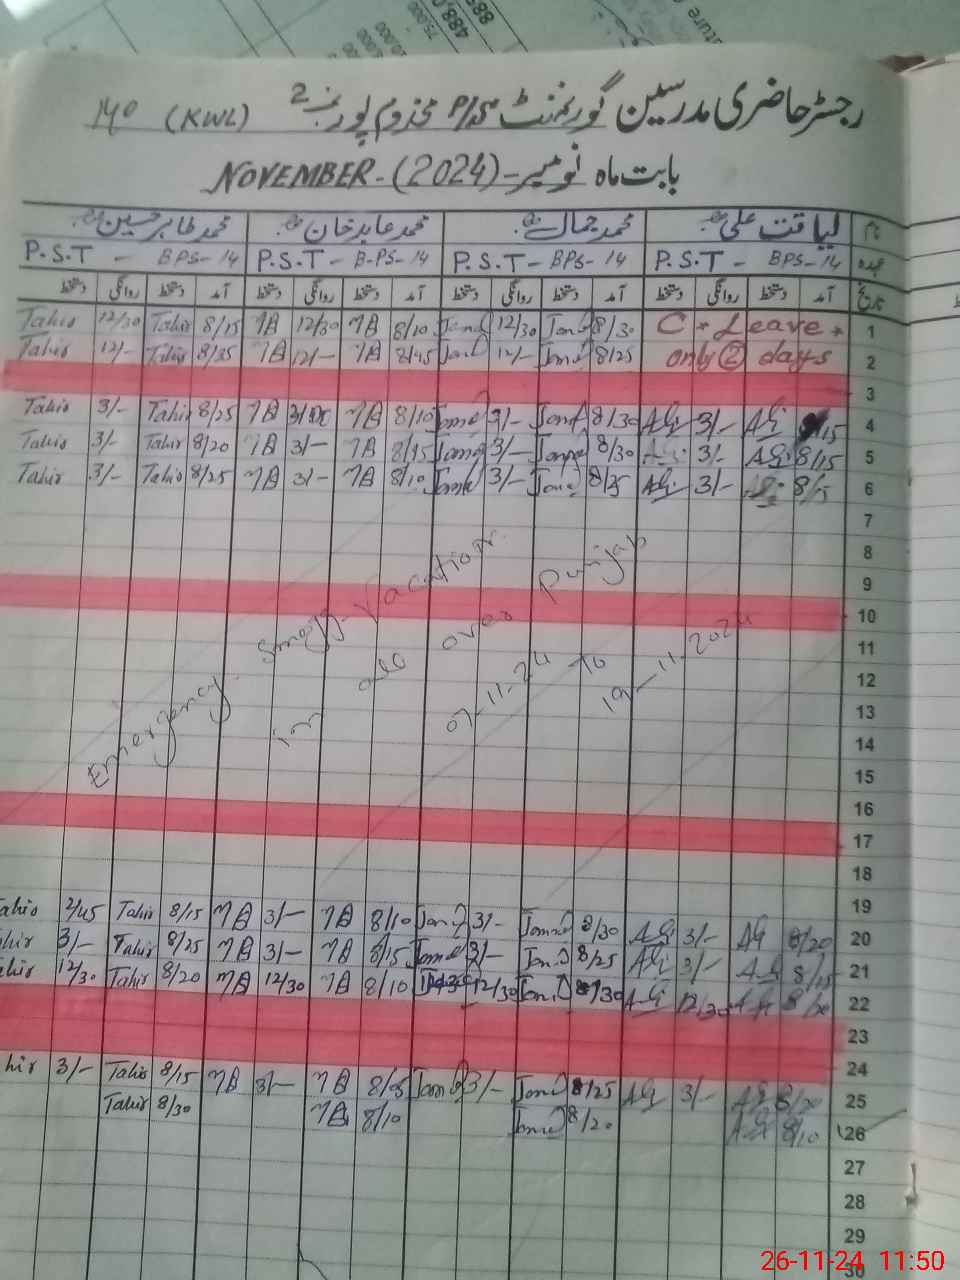 رجسٹر حاضری مدرسین گورنمنٹ P/S مخدوم پور نمبر 2 (KWL)
بابت ماہ نومبر - NOVEMBER - (2024)
نام لیاقت علی محمد جمال محمد عابد خان محمد طاہر حسین
عہدہ P.S.T - BPS-14 P.S.T - BPS-14 P.S.T - B-PS-14 P.S.T - BPS-14
تاریخ آمد دستخط روانگی دستخط آمد دستخط روانگی دستخط آمد دستخط روانگی دستخط آمد دستخط روانگی دستخط
Tahir 12/30 Tahir 8/15 MA 12/30 MA 8/10 Jamal 12/30 Jamal 8/30 C. Leave 1
Tahir 12/- Tahir 8/35 MA 12/- MA 8/45 Jamal 12/- Jamal 8/25 only 2 days 2
3
Tahir 3/- Tahir 8/25 MA MA 8/10 Jamal 3/- Jamal 8/30 Ali 3/- Ali 4
Tahir 3/- Tahir 8/20 MA 3/- MA Jamal 3/- Jamal 8/30 Ali 3/- Ali 8/15 5
Tahir 3/- Tahir 8/25 MA 3/- MA 8/10 Jamal 3/- Jamal 8/25 Ali 3/- 8/15 6
7
8
9
10
11
12
13
14
15
16
17
18
Emergency Smogg Vacation
in all over Punjab
07-11-24 to 19-11-2024
19
Tahir 2/45 Tahir 8/15 MA 3/- MA 8/10 Jamal 3/- Jamal 8/30 Ali 3/- Ali 8/20 20
Tahir 3/- Tahir 8/25 MA 3/- MA 8/15 Jamal 3/- Jamal 8/25 Ali 3/- Ali 8/15 21
12/30 Tahir 8/20 MA 12/30 MA 8/10 12/30 Jamal 8/30 Ali 12/30 Ali 22
23
24
hir 3/- Tahir 8/15 MA 3/- MA Jamal 3/- Jamal 8/25 Ali 3/- Ali 8/20 25
Tahir 8/30 MA 8/10 Jamal 8/20 Ali 8/10 26
27
28
29
30
26-11-24 11:50